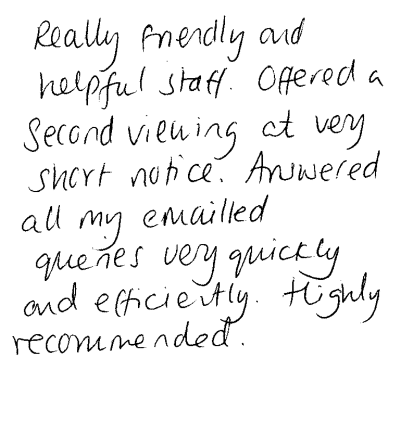 Really friendly and
helpful staff. Offered a
Second viewing at very
short notice. Answered
all my emailled
queries very quickly
and efficiently. Highly
recommended.